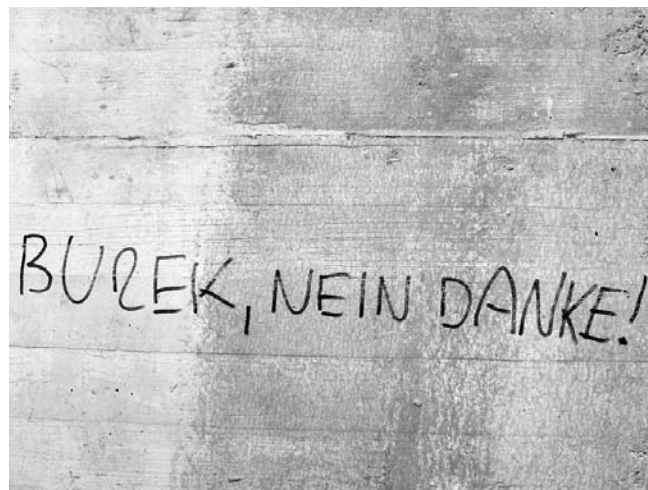 BUREK, NEIN DANKE!